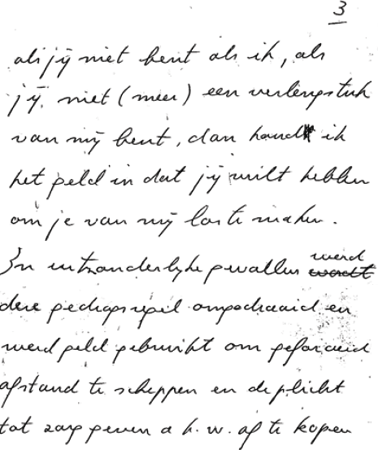 3
als jij niet bent als ik, als
jij niet (meer) een verlengstuk
van mij bent, dan houd ik
het geld in dat jij wilt hebben
om je van mij los te maken.
In uitzonderlijke gevallen werd
deze gedragsregel omgedraaid en
werd geld gebruikt om geforceerd
afstand te scheppen en de plicht
tot zorg geven a.h.w. af te kopen